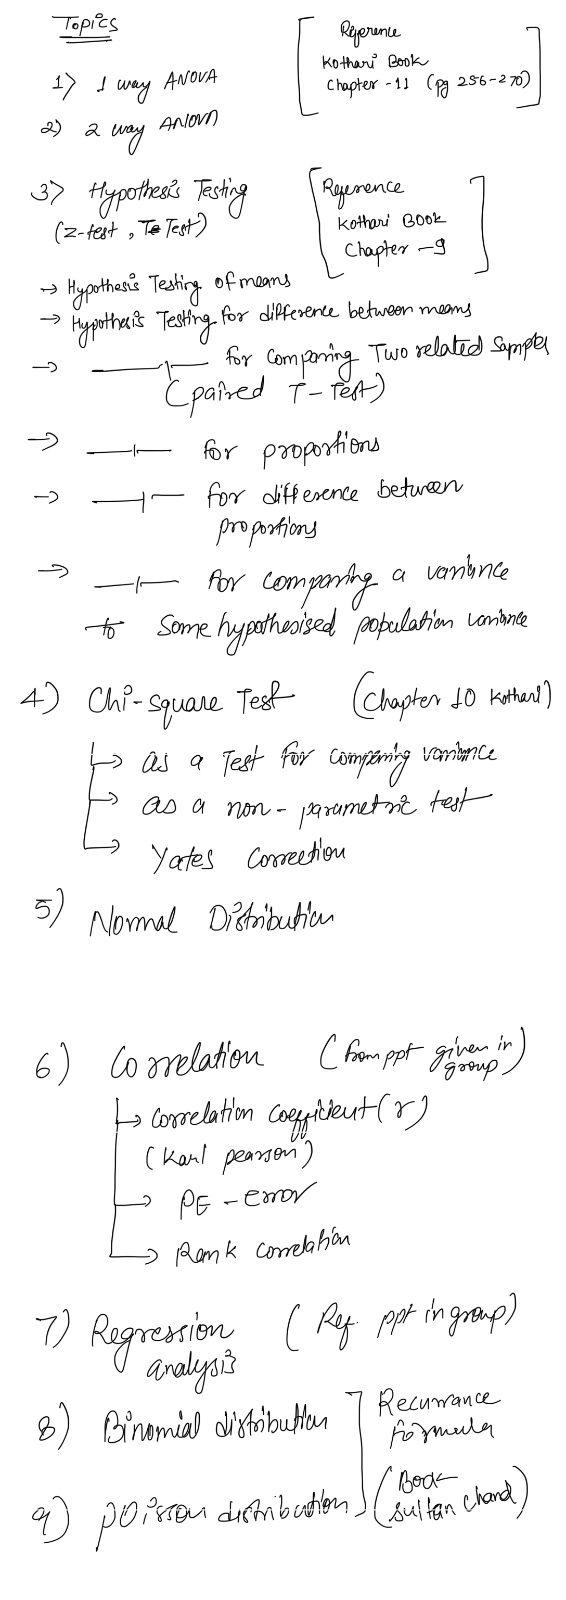 Topics
Reference
Kothari Book
Chapter -11 (pg 256-270)
1) 1 way ANOVA
2) 2 way ANOVA
3) Hypothesis Testing
(Z-test, T Test)
Reference
Kothari Book
Chapter -9
→ Hypothesis Testing of means
→ Hypothesis Testing for difference between means
→ —||— for comparing Two related Samples
(paired T-Test)
→ —||— for proportions
→ —||— for difference between
proportions
→ —||— for comparing a variance
to Some hypothesised population variance
4) Chi-square Test (Chapter 10 Kothari)
↳ as a Test for comparing variance
→ as a non-parametric test
→ Yates Correction
5) Normal Distribution
6) Correlation (from ppt given in
group)
↳ Correlation coefficient (r)
(Karl pearson)
→ PE - error
→ Rank correlation
7) Regression (Ref. ppt in group)
analysis
8) Binomial distribution
Recurrance
formula
9) poission distribution
(Book
sultan chand)